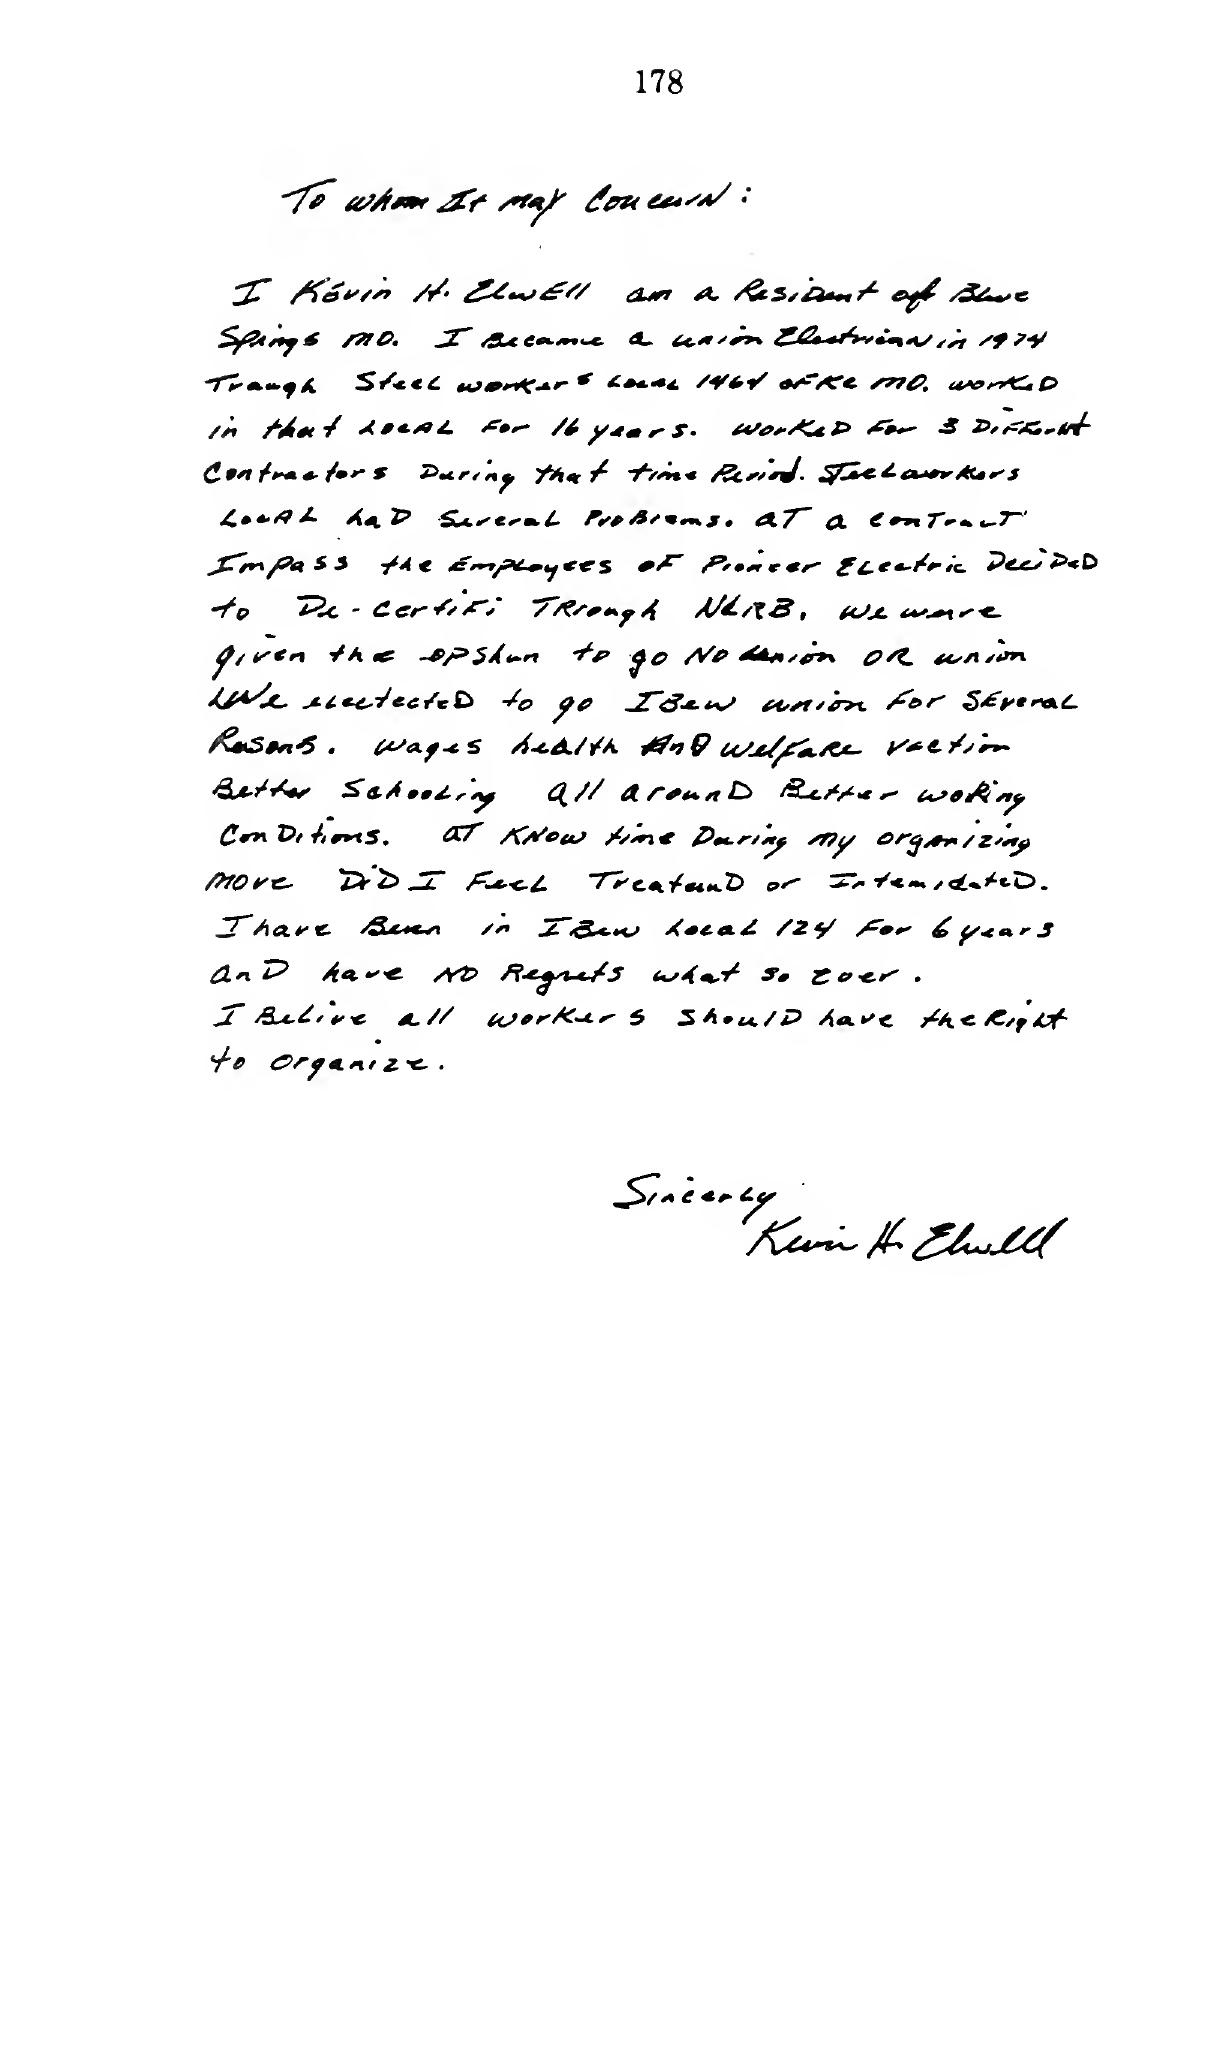 178
To whom It may Concern:
I Kevin H. Elwell am a Resident of Blue
Springs MO. I Became a union Electrician in 1974
Traugh Steel workers Local 1464 of KC MO. worked
in that Local For 16 years. Worked For 3 Different
Contractors During that time Period. Steelworkers
Local had Several Problems. AT a ConTract
Impass the Employees of Pioneer Electric Decided
to De-certifi TRrough NLRB. We were
given the opshun to go No union OR union
We electected to go IBEW union For Several
Resons. Wages health And Welfare vaction
Better Schooling all around Better woking
Conditions. at Know time During my organizing
move Did I Feel Treatund or Intemidated.
I have Been in IBEW Local 124 For 6 years
and have NO Regrets what so ever.
I Belive all workers should have the Right
to organize.
Sincerly
Kevin H. Elwell